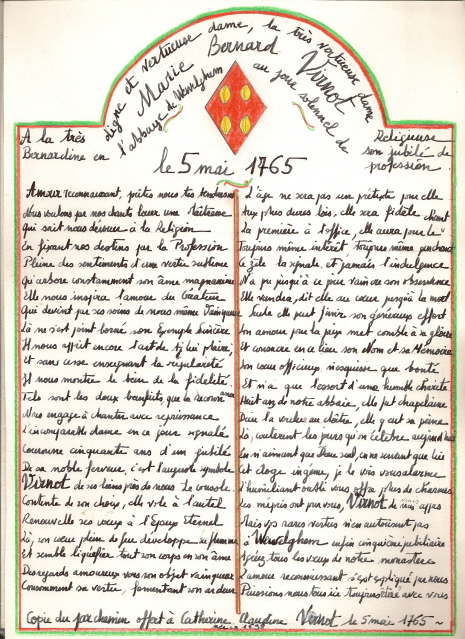 A la très digne et vertueuse dame, la très vertueuse dame
Marie Bernard Virnot
Religieuse
Bernardine en l'abbaye de Wevelghem au jour solennel de son jubilé de
profession
le 5 mai 1765
Amour reconnaissant, prêtes nous tes tendresses
Nous voulons par nos chants louer une
Qui sait nous dévouer à la Religion
En fixant nos destins par la Profession
Pleine des sentiments d'une vertu sublime
Qui arbore constamment son âme magnanime
Elle nous inspira l'amour du Créateur
Qui devint par ses soins de nous même Vainqueur
Là ne s'est point borné son Exemple sincère
Il nous apprit encore l'art de lui plaire,
Et sans cesse enseignant la régularité
Il nous montre le bien de la fidélité.
Tels sont les doux bienfaits, que la
Nous engage à chanter avec
L'incomparable dame en ce jour signalé
Couronne cinquante ans d'un jubilé
De sa noble ferveur, c'est l'auguste symbole
Virnot de ses loins de nous te console.
Contente de son choix, elle vole à l'autel
Renouvelle ses vœux à l'époux éternel
Là, son cœur plein de feu développe sa flamme
Et semble liquéfier tout son corps en son âme
Des regards amoureux vers son objet vainqueur
Consomment sa vertu, fomentant son ardeur
L'âge ne sera pas un prétexte pour elle
Aux plus durs lois, elle sera fidèle
La première à l'office, elle aura pour le chant
Toujours même intérêt, toujours même penchant
Le zèle la signale et jamais l'indulgence
N'a pu jusqu'à ce jour vaincre son observance
Elle viendra, dit elle au cœur jusqu'à la mort
elle peut finir son généreux effort
Son amour pour la paix met comble à sa gloire
Et consacre en ce lieu son Nom et sa Mémoire
Son cœur officieux n'esquisse que bonté
Et n'a que l'essort d'une humble charité
Huit ans de notre abbaie, elle fut chapelaine
Dieu la voulut au cloître, elle y eut sa peine
Là, coulèrent les jours qu'on célèbre aujourd'hui
En n'aimant que Dieu seul, en ne servant que lui
Cet éloge ingénu, je le vois vous alarme
L'humiliant oubli vous offre plus de charmes
Les mépris ont pour vous, Virnot de vrais appas
Mais vos rares vertus n'en autorisent pas
à Wevelghem enfin cinquième jubiliaire
Agréez tous les vœux de notre monastère
L'amour reconnaissant s'est expliqué par nous
Puissions nous tous ici toujours être avec vous
Copie du parchemin offert à Catherine Claudine Virnot le 5 mai 1765 ~